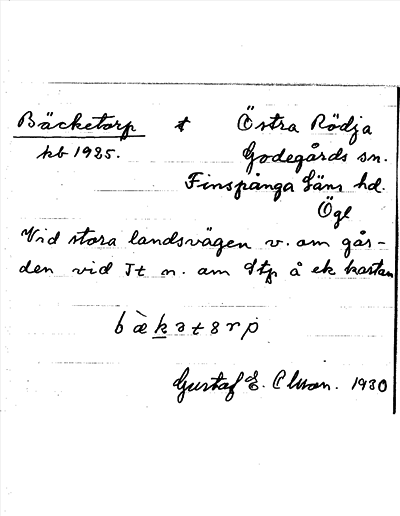 Bäcketorp t Östra Rödja
kb 1925. Godegårds sn.
Finspånga läns hd.
Ögl
Vid stora landsvägen v. om går-
den vid Jt n. om Stp å ek kartan
bæ̀kətɜrp
Gustaf E. 1930